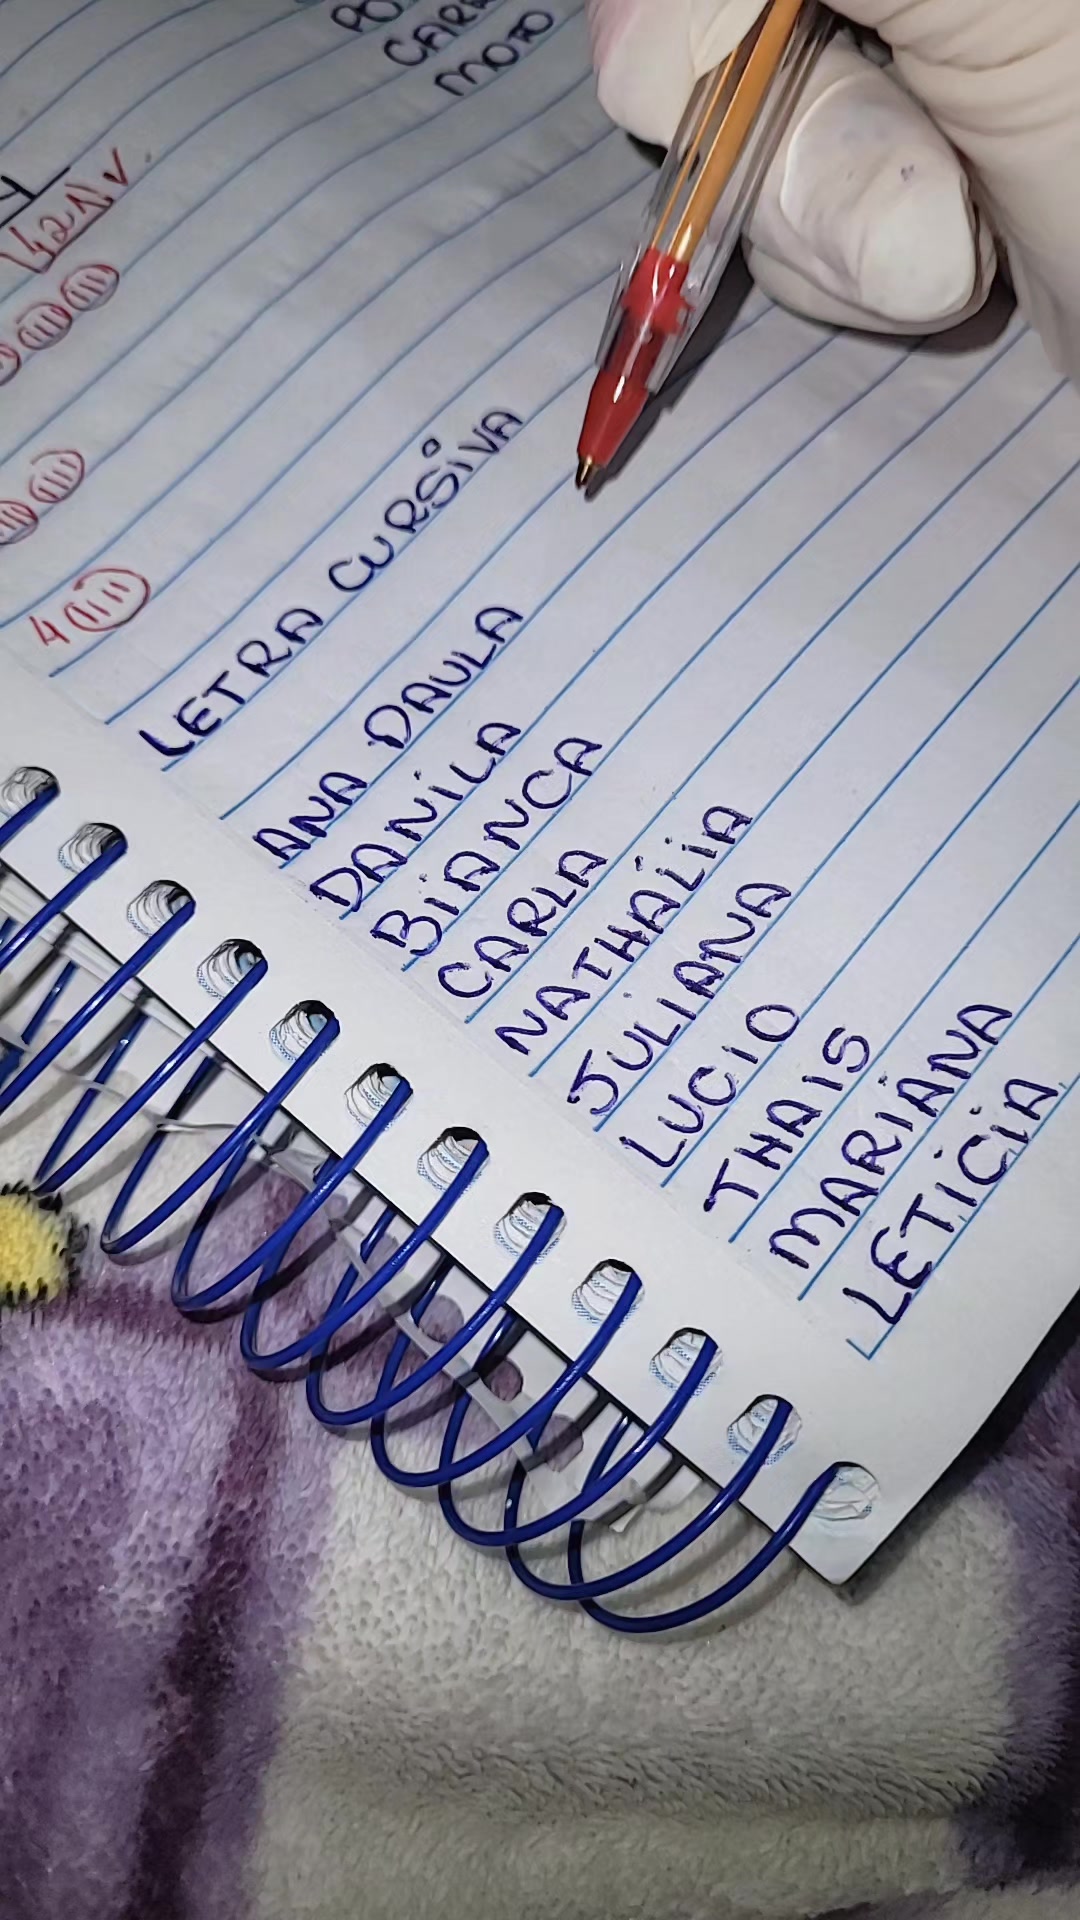 MOTO
421 v
4
LETRA CURSIVA
ANA DAULA
DANILA
BIANCA
CARLA
NATHALIIA
JULIANA
LUCIO
THAIS
MARIANA
LETICIA